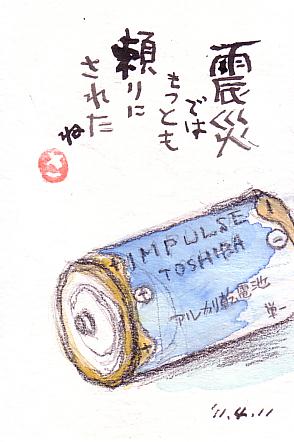 震災
では
もっとも
頼りに
された
ね
IMPULSE
TOSHIBA
アルカリ乾電池
単一
+
-
'11.4.11